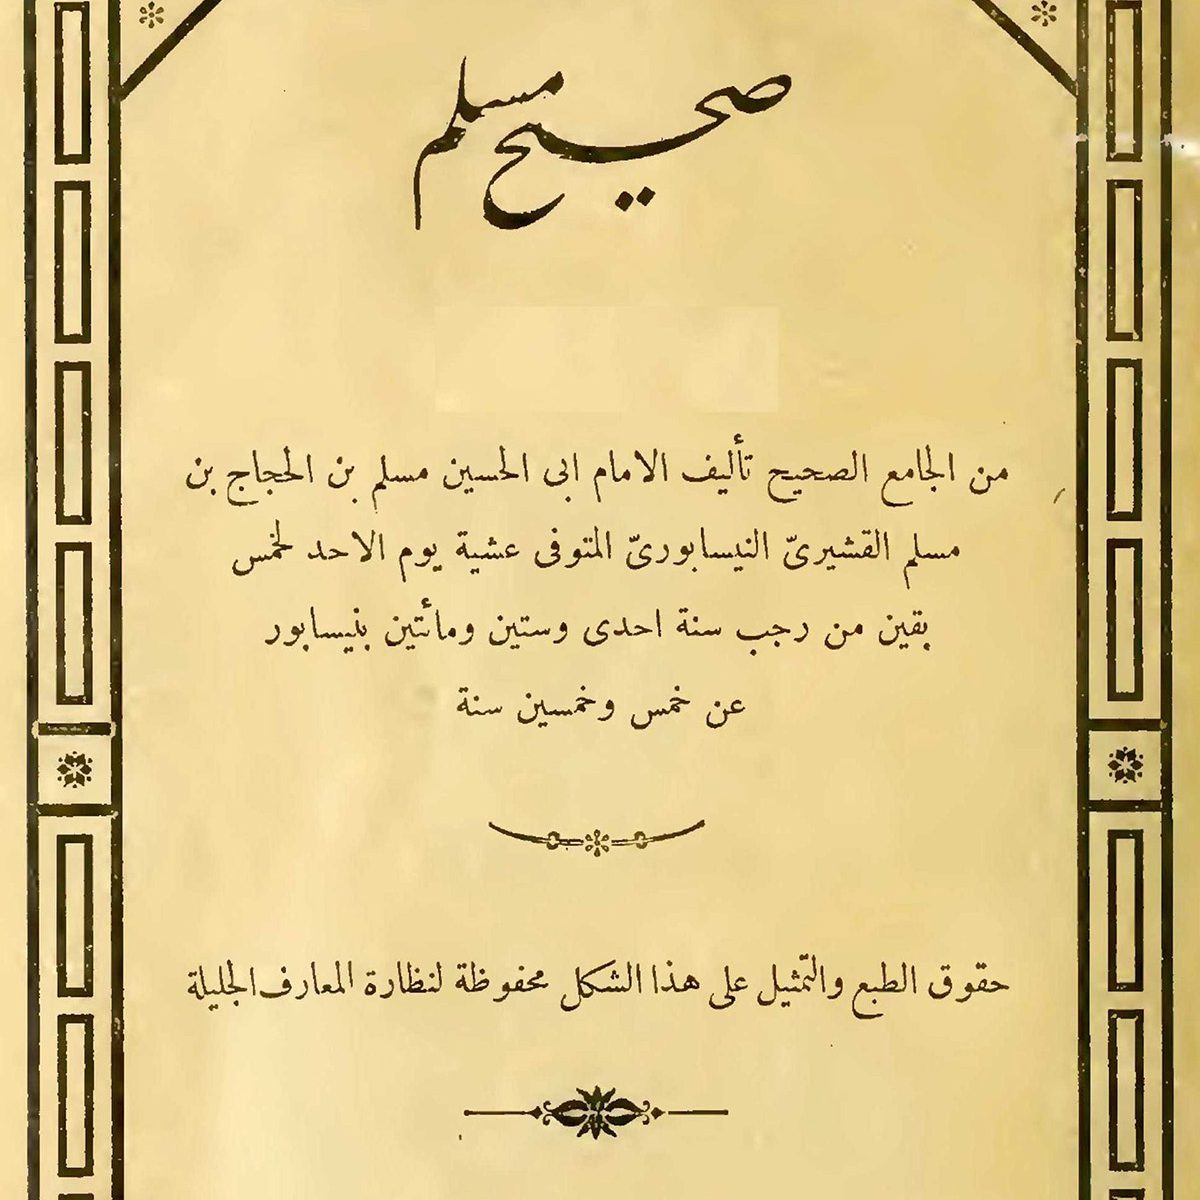 صحيح مسلم
من الجامع الصحيح تأليف الامام ابى الحسين مسلم بن الحجاج بن
مسلم القشيرىّ النيسابورىّ المتوفى عشية يوم الاحد لخمس
بقين من رجب سنة احدى وستين ومأتين بنيسابور
عن خمس وخمسين سنة
حقوق الطبع والتمثيل على هذا الشكل محفوظة لنظارة المعارف الجليلة